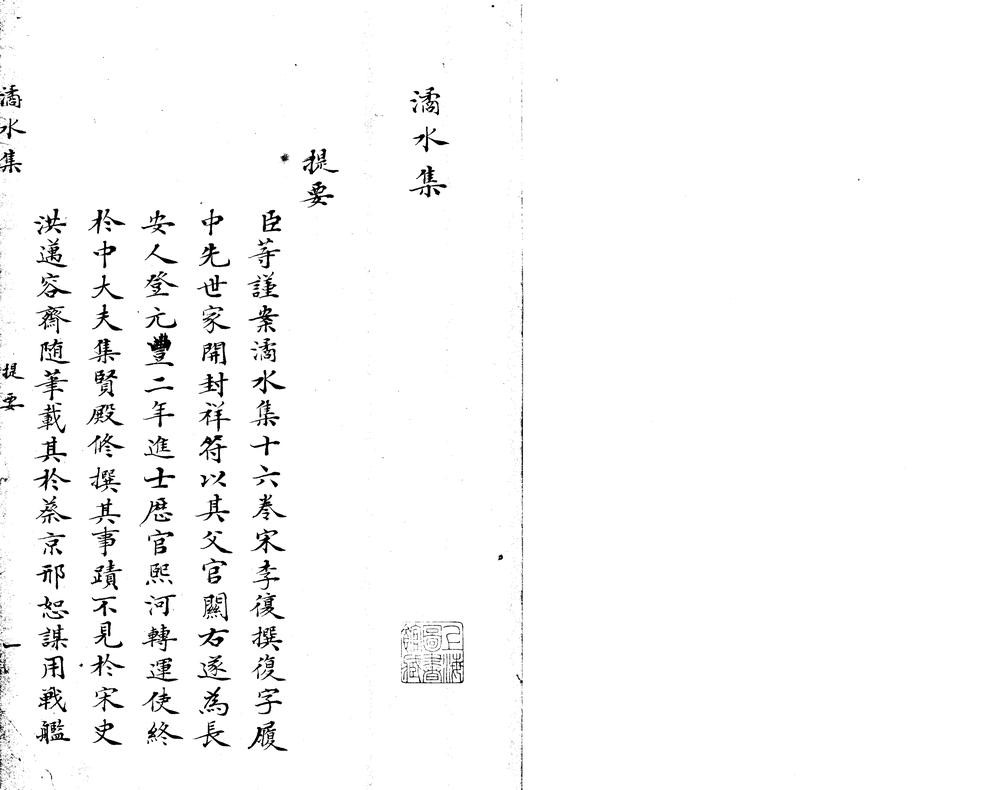 潏水集
提要
臣等謹案潏水集十六巻宋李復撰復字履
中先世家開封祥符以其父官關右遂為長
安人登元豐二年進士歴官熙河轉運使終
於中大夫集賢殿修撰其事蹟不見於宋史
洪邁容齋随筆載其於蔡京邢恕謀用戰艦
潏水集
提要
一